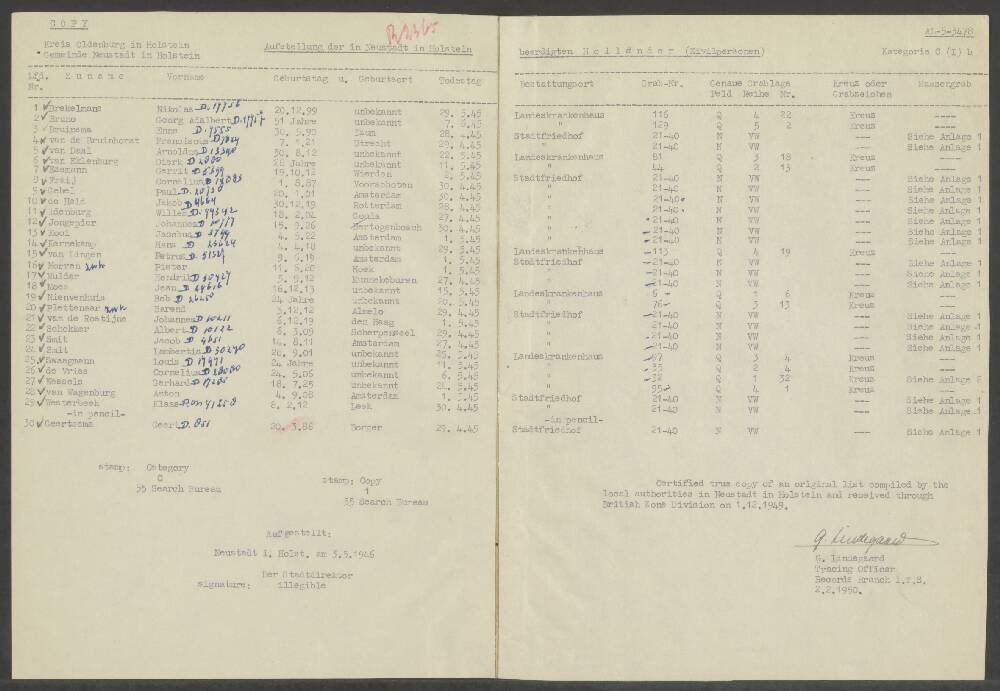 COPY
B236
AI-5-54/8
Kreis Oldenburg in Holstein
Gemeinde Neustadt in Holstein
Aufstellung der in Neustadt in Holstein beerdigten Holländer (Zivilpersonen) Kategorie C (I) b
Lfd. Nr. Zuname Vorname Geburtstag u. Geburtsort Todestag Bestattungsort Grab-Nr. Genaue Grablage Feld Reihe Nr. Kreuz oder Grabzeichen Massengrab
1 Brekelmans Nikolas 20.12.99 unbekannt 29. 5.45 Landeskrankenhaus 116 Q 4 22 Kreuz ----
2 Bruno Georg Adalbert 51 Jahre unbekannt 7. 6.45 " 129 Q 5 2 Kreuz ----
3 Bruinsma Enno D. 7555 30. 5.90 28. 4.45 Stadtfriedhof 21-40 N VW --- Siehe Anlage 1
4 van de Bruinhorst Franciscus 7. 1.21 Utrecht 29. 4.45 " 21-40 N VW --- Siehe Anlage 1
5 van Daal Arnoldus 30. 8.12 unbekannt 22. 5.45 Landeskrankenhaus 81 Q 3 18 Kreuz
6 van Eklenburg Dierk 26 Jahre unbekannt 11. 5.45 " 44 Q 2 13 Kreuz
7 Gerrit 19.10.12 Woerden 2. 5.45 Stadtfriedhof 21-40 N VW --- Siehe Anlage 1
8 Cornelius 1. 8.87 Voorschoten 30. 4.45 " 21-40 N VW --- Siehe Anlage 1
9 Gebel Paul 20. 1.01 Amsterdam 30. 4.45 " 21-40 N VW --- Siehe Anlage 1
10 de Haid Jakob 30.12.19 Rotterdam 28. 4.45 " 21-40 N VW --- Siehe Anlage 1
11 Idenburg Willem 18. 2.02 Gouda 27. 4.45 " 21-40 N VW --- Siehe Anlage 1
12 Jongepier Johannes 15. 9.26 Hertogenbosch 30. 4.45 " 21-40 N VW --- Siehe Anlage 1
13 Kool Jacobus 4. 5.02 Amsterdam 1. 5.45 " 21-40 N VW --- Siehe Anlage 1
14 Karnekamp Hans 4. 4.18 unbekannt 29. 5.45 Landeskrankenhaus 113 Q 4 19 Kreuz
15 van Lingen Petrus 9. 9.19 Amsterdam 1. 5.45 Stadtfriedhof 21-40 N VW --- Siehe Anlage 1
16 Morren Pieter 11. 5.20 Hoek 1. 5.45 " 21-40 N VW --- Siehe Anlage 1
17 Mulder Hendrik 27. 4.45 " 21-40 N VW --- Siehe Anlage 1
18 Moes Jean 16.12.13 unbekannt 15. 5.45 Landeskrankenhaus 6 Q 1 6 Kreuz ---
19 Nienvenhuis Bob 24 Jahre unbekannt 20. 5.45 " 76 Q 3 13 Kreuz ---
20 Plettenaar Barend 3.12.12 Almelo 29. 4.45 Stadtfriedhof 21-40 N VW --- Siehe Anlage 1
21 van de Rostijne Johannes 6.12.19 den Haag 1. 5.45 " 21-40 N VW --- Siehe Anlage 1
22 Schokker Albert 6. 3.09 Scherpenseel 29. 4.45 " 21-40 N VW --- Siehe Anlage 1
23 Smit Jacob D 4651 14. 8.11 Amsterdam 27. 4.45 " 21-40 N VW --- Siehe Anlage 1
24 Smit Lambertin 28. 9.01 unbekannt 25. 5.45 Landeskrankenhaus 87 Q 3 4 Kreuz ---
25 Swagmann Louis 24 Jahre unbekannt 11. 5.45 " 35 Q 2 4 Kreuz ---
26 de Vries Cornelius 24. 5.06 unbekannt 6. 5.45 " 32 Q 1 32 Kreuz Siehe Anlage 2
27 Wessels Gerhard 18. 7.25 unbekannt 24. 5.45 " 95 Q 4 1 Kreuz ---
28 van Wagenburg Anton 4. 9.08 Amsterdam 1. 5.45 Stadtfriedhof 21-40 N VW --- Siehe Anlage 1
29 Westerbeek Klaas 6. 2.12 Leek 30. 4.45 " 21-40 N VW --- Siehe Anlage 1
-in pencil- -in pencil-
30 Geertsema Geert D. 851 20. 3.86 Borger 29. 4.45 Stadtfriedhof 21-40 N VW --- Siehe Anlage 1
stamp: Category
C
55 Search Bureau
stamp: Copy
1
55 Search Bureau
Aufgestellt:
Neustadt i. Holst. am 3.5.1946
Der Stadtdirektor
signature: illegible
Certified true copy of an original list compiled by the
local authorities in Neustadt in Holstein and received through
British Zone Division on 1.12.1949.
G. Lindegaard
G. Lindegaard
Tracing Officer
Records Branch I.T.S.
2.2.1950.